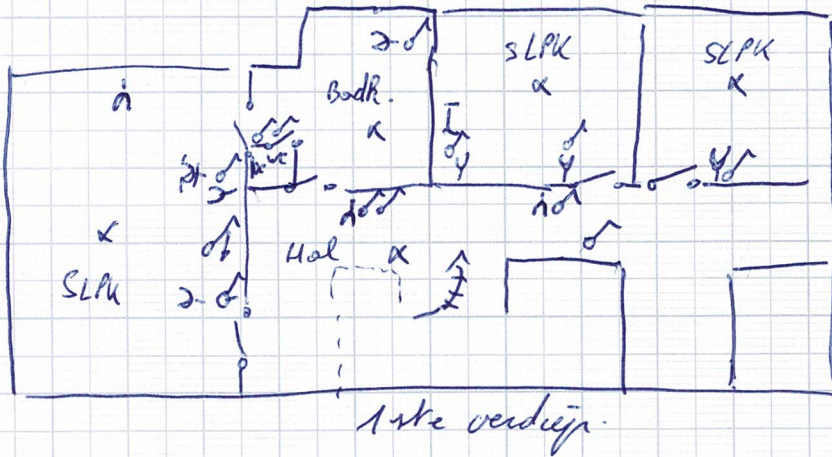 SLPK
SLPK
Badk.
WC
Hal
SLPK
1ste verdiep.